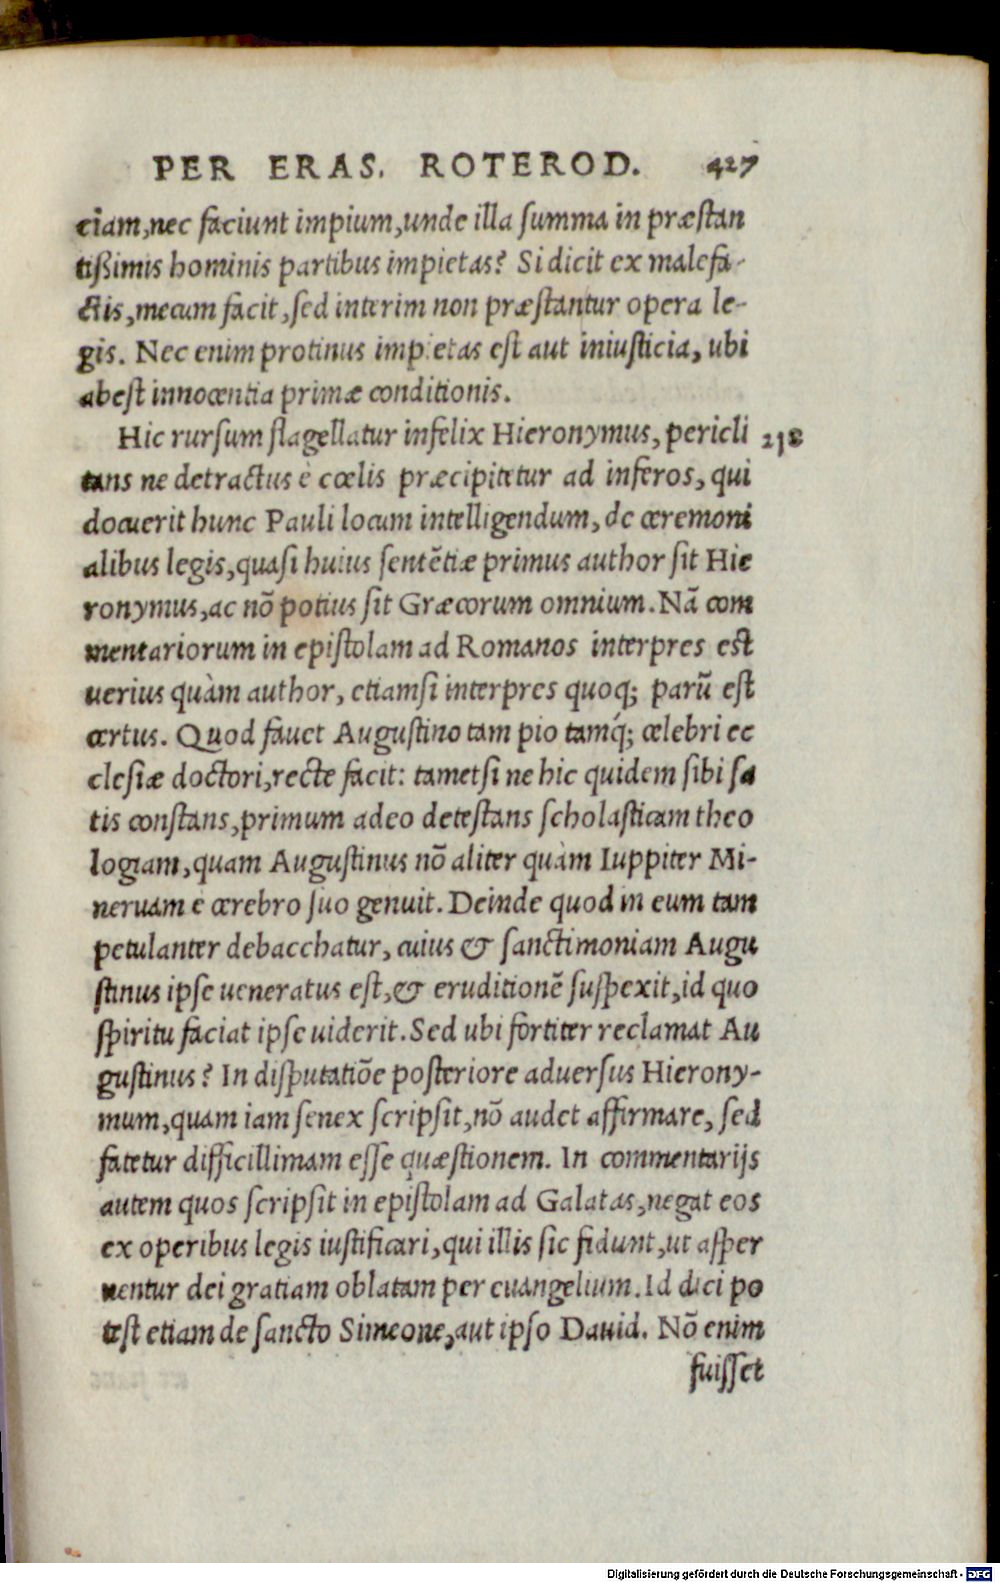 PER ERAS. ROTEROD. 427
ciam, nec faciunt impium, unde illa summa in præstan
tißimis hominis partibus impietas? Si dicit ex malefa-
ctis, mecum facit, sed interim non præstantur opera le-
gis. Nec enim protinus impietas est aut iniusticia, ubi
abest innocentia primæ conditionis.
Hic rursum flagellatur infelix Hieronymus, pericli 218
tans ne detractus è cœlis præcipitetur ad inferos, qui
docuerit hunc Pauli locum intelligendum, de ceremoni
alibus legis, quasi huius sentẽtiæ primus author sit Hie
ronymus, ac nõ potius sit Græcorum omnium. Nã com
mentariorum in epistolam ad Romanos interpres est
uerius quàm author, etiamsi interpres quoq; parũ est
certus. Quod fauet Augustino tam pio tamq́; celebri ec
clesiæ doctori, recte facit: tametsi ne hic quidem sibi sa
tis constans, primum adeo detestans scholasticam theo
logiam, quam Augustinus nõ aliter quàm Iuppiter Mi-
neruam e cerebro suo genuit. Deinde quod in eum tam
petulanter debacchatur, cuius & sanctimoniam Augu
stinus ipse ueneratus est, & eruditionẽ suspexit, id quo
spiritu faciat ipse uiderit. Sed ubi fortiter reclamat Au
gustinus? In disputatiõe posteriore aduersus Hierony-
mum, quam iam senex scripsit, nõ audet affirmare, sed
fatetur difficillimam esse quæstionem. In commentarijs
autem quos scripsit in epistolam ad Galatas, negat eos
ex operibus legis iustificari, qui illis sic fidunt, ut asper
nentur dei gratiam oblatam per euangelium. Id dici po
test etiam de sancto Simeone, aut ipso Dauid. Nõ enim
fuisset
Digitalisierung gefördert durch die Deutsche Forschungsgemeinschaft - DFG